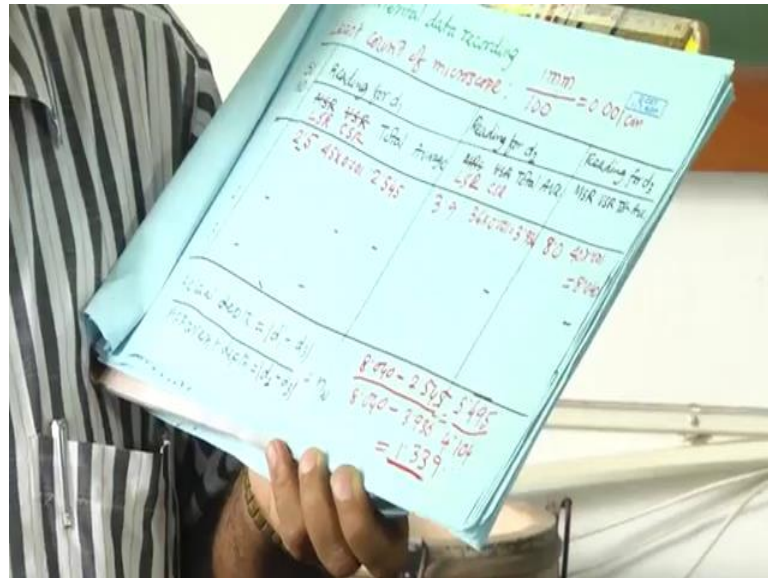 data recording
Least count of microscope: 1mm/100 = 0.001cm
Reading for d₁ Reading for d₂ Reading for d₃
LSR CSR Total Average LSR CSR Total Ave. MSR VSR Tot Ave.
2.5 45x0.001 2.545 3.9 36x0.001=3.936 8.0 40x0.001
=8.040
Real depth = |d₁-d₃|
Apparent depth = |d₂-d₃| = nw
8.040 - 2.545 = 5.495
8.040 - 3.936 4.104
= 1.339